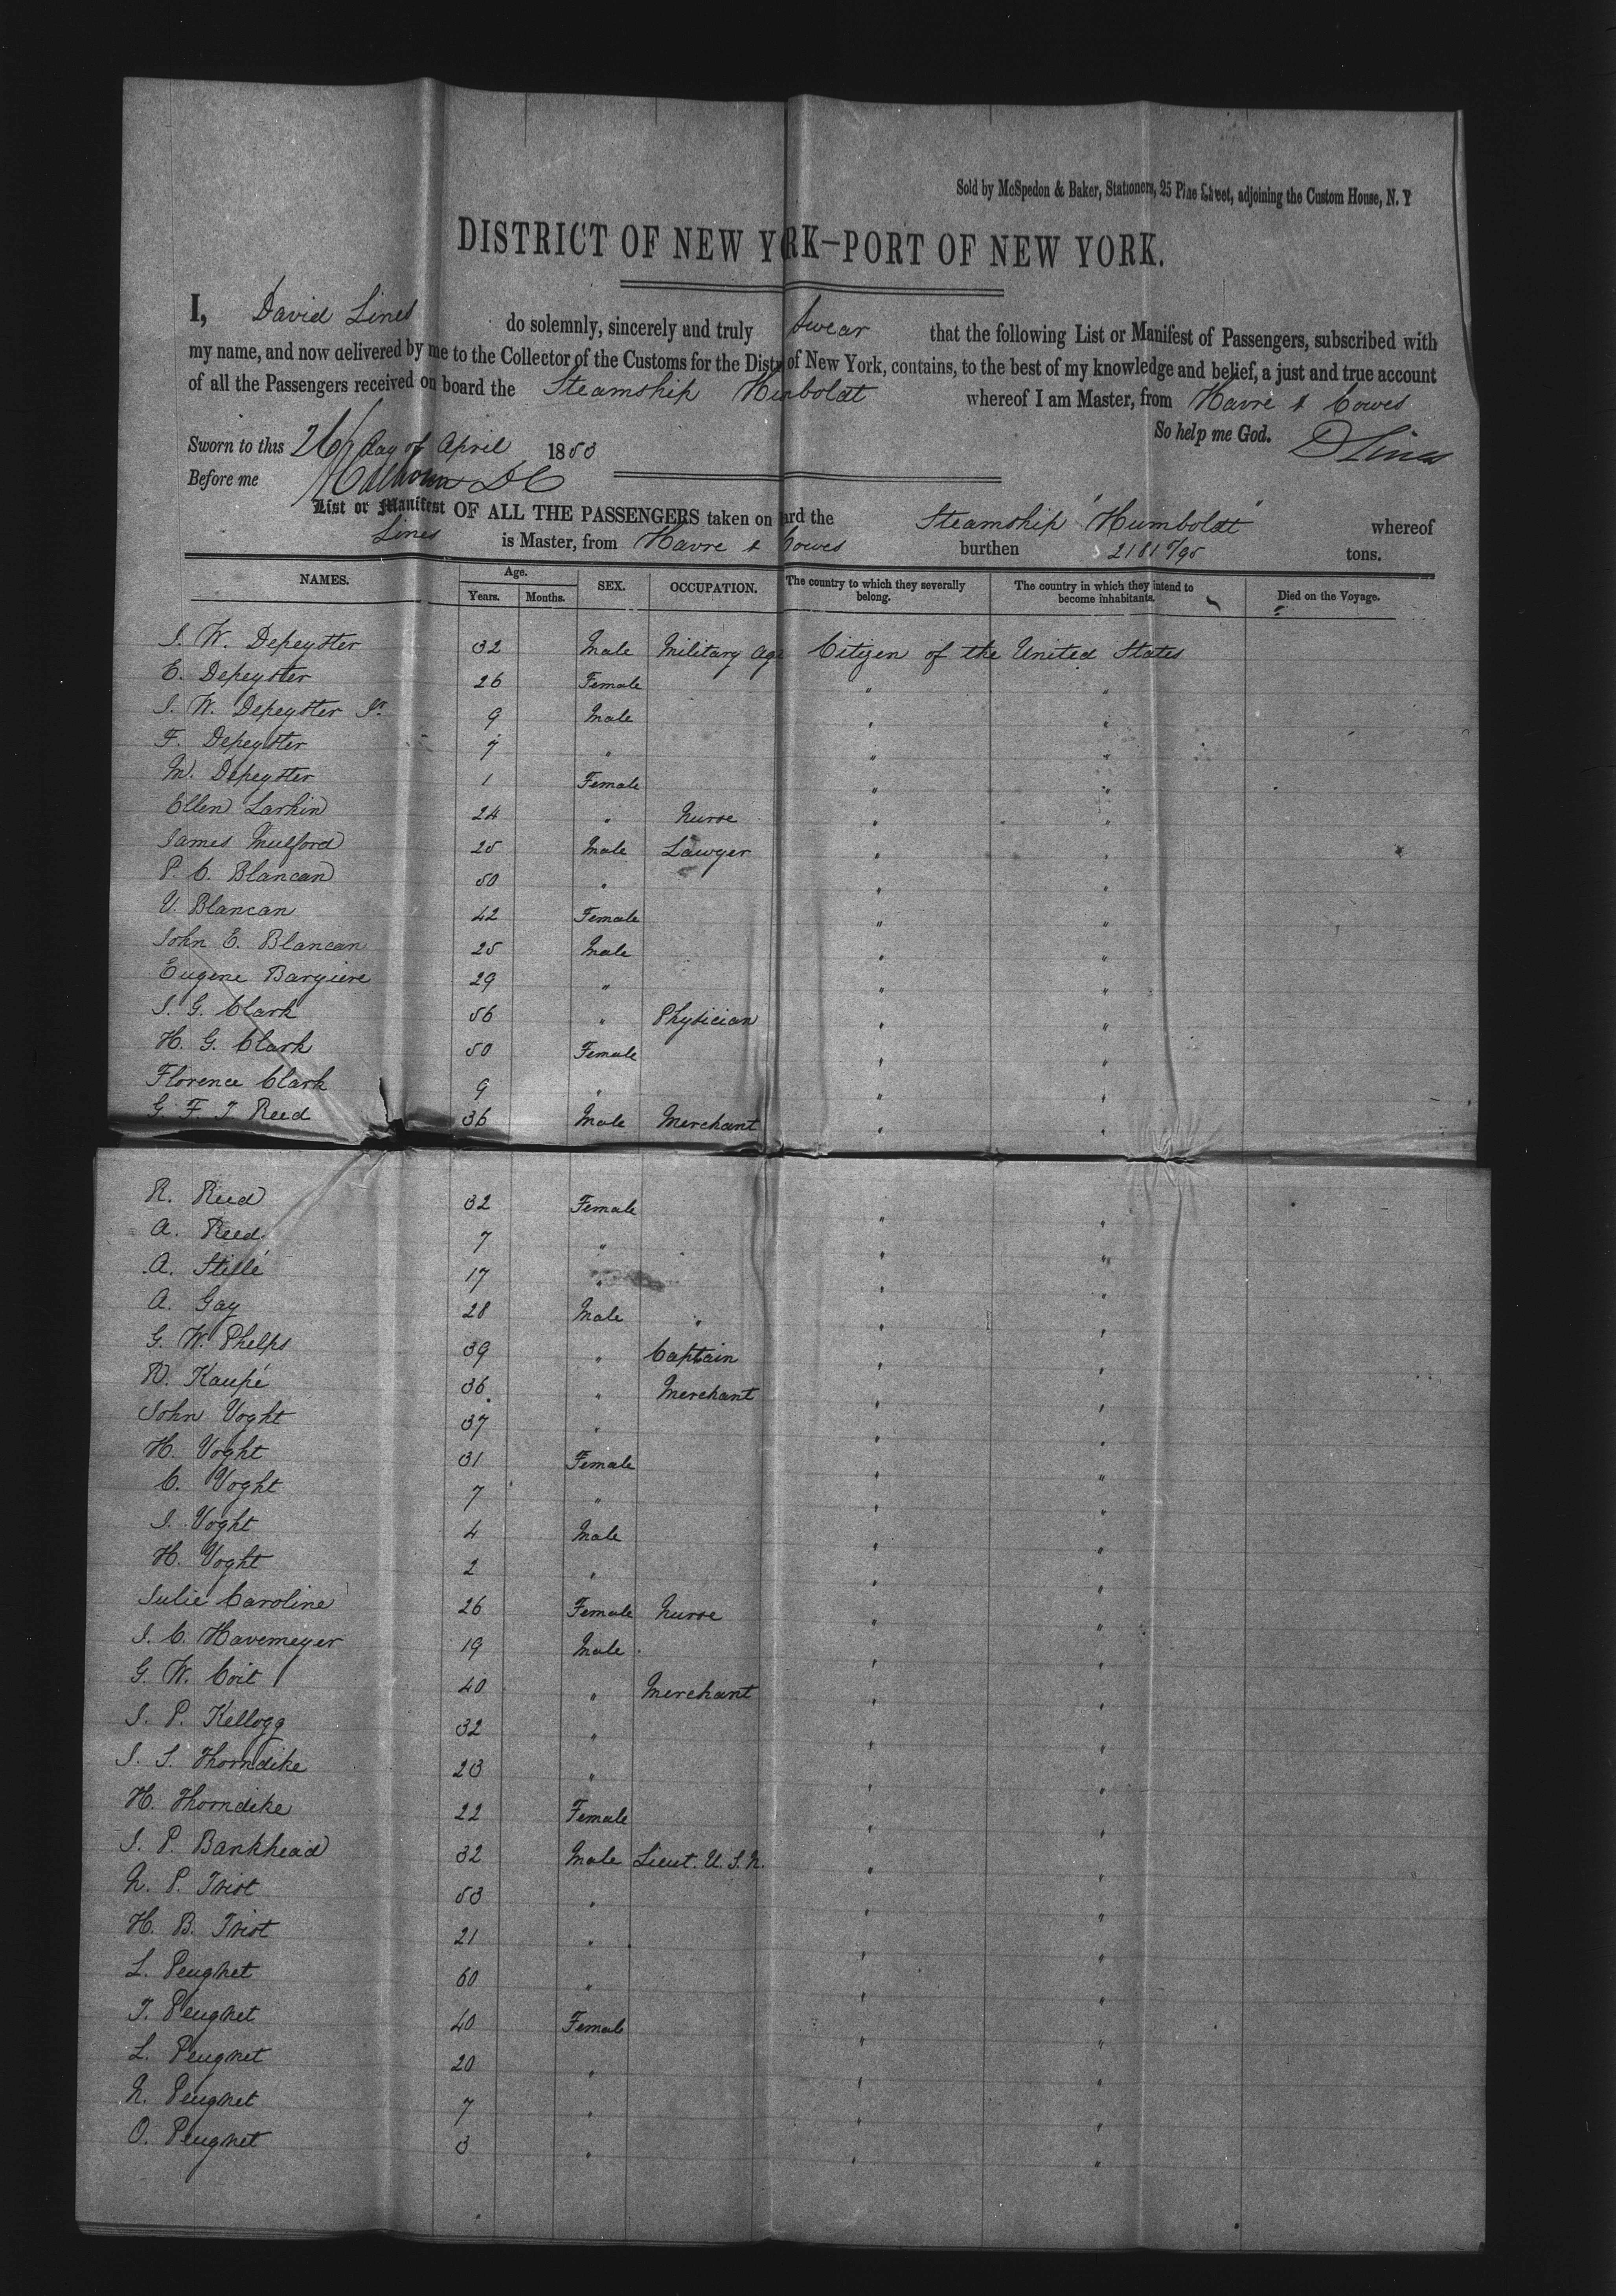 Sold by McSpedon & Baker, Stationers, 25 Pine Street, adjoining the Custom House, N. Y
DISTRICT OF NEW YORK—PORT OF NEW YORK.
I, David Lines do solemnly, sincerely and truly swear that the following List or Manifest of Passengers, subscribed with
my name, and now delivered by me to the Collector of the Customs for the Distr of New York, contains, to the best of my knowledge and belief, a just and true account
of all the Passengers received on board the Steamship Humboldt whereof I am Master, from Havre & Cowes
So help me God. D Lines
Sworn to this 26 day of April 1853
Before me
List or Manifest OF ALL THE PASSENGERS taken on ard the Steamship "Humboldt" whereof
Lines is Master, from Havre & Cowes burthen 2181 5/95 tons.
NAMES. Age. Years. Months. SEX. OCCUPATION. The country to which they severally belong. The country in which they intend to become inhabitants. Died on the Voyage.
J. W. Depeyster 32 Male Military Age Citizen of the United States
E. Depeyster 26 Female " "
J. W. Depeyster Jr 9 Male " "
F. Depeyster 7 " " "
M. Depeyster 1 Female " "
Ellen Larkin 24 " Nurse " "
James Mulford 25 Male Lawyer " "
P. C. Blancan 50 " " "
V. Blancan 42 Female " "
John E. Blancan 25 Male " "
Eugene Bargiere 29 " " "
J. G. Clark 56 " Physician " "
H. G. Clark 50 Female " "
Florence Clark 9 " " "
G. F. T. Reed 36 Male Merchant " "
R. Reed 32 Female " "
A. Reed 7 " " "
A. Stillé 17 " " "
A. Gay 28 Male " " "
G. W. Phelps 39 " Captain " "
W. Kaupé 36 " Merchant " "
John Voght 37 " " "
H. Voght 31 Female " "
C. Voght 7 " " "
J. Voght 4 Male " "
H. Voght 2 " " "
Julie Caroline 26 Female Nurse " "
J. C. Havemeyer 19 Male " "
G. W. Coit 40 " Merchant " "
J. P. Kellogg 32 " " "
J. S. Thorndike 23 " " "
H. Thorndike 22 Female " "
J. P. Bankhead 32 Male Lieut. U. S. N. " "
N. P. Trist 53 " " "
H. B. Trist 21 " " "
L. Peugnet 60 " " "
T. Peugnet 40 Female " "
L. Peugnet 20 " " "
N. Peugnet 7 " " "
O. Peugnet 3 " " "